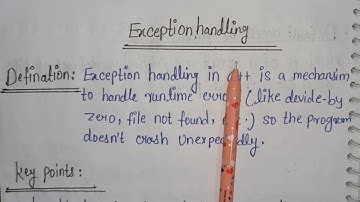 Exception handling
Defination: Exception handling in ++ is a mechanism
to handle runtime erro (like devide-by
zero, file not found, .) so the program
doesn't crash Unexpe dly.
key points: